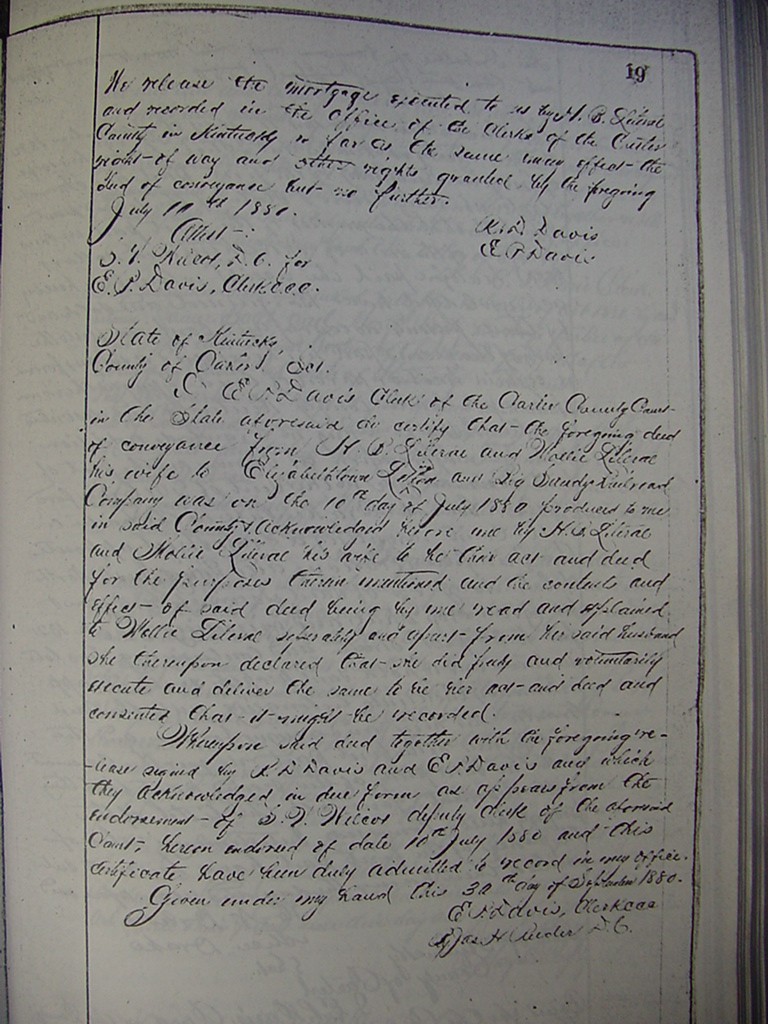 19
We release the mortgage executed to us by H. B. Literal
and recorded in the office of the Clerks of the Carter
County in Kentucky so far as the same may effect the
right of way and other rights granted by the foregoing
deed of conveyance but no further.
July 10th 1880.
Attest:
K. D. Davis
E P Davis
S. V. Wilcox, D. C. for
E. P. Davis, Clerk CCC.
State of Kentucky
County of Carter Sct.
I E P Davis Clerk of the Carter County Court
in the State aforesaid do certify that the foregoing deed
of conveyance from H. B. Literal and Mollie Literal
his wife to Elizabethtown Lexington and Big Sandy Railroad
Company was on the 10th day of July 1880 produced to me
in said County & acknowledged before me by H. B. Literal
and Mollie Literal his wife to be their act and deed
for the purposes therein mentioned and the contents and
effect of said deed being by me read and explained
to Mollie Literal seperately and apart from her said husband
she thereupon declared that she did freely and voluntarily
execute and deliver the same to be her act and deed and
consented that it might be recorded.
Whereupon said deed together with the foregoing re-
-lease signed by K D Davis and E P Davis and which
they acknowledged in due form as appears from the
endorsement of S. V. Wilcox deputy clerk of the aforesaid
Court, hereon endorsed of date 10th July 1880 and this
certificate have been duly admitted to record in my office.
Given under my hand this 30th day of September 1880.
E P Davis, Clerk CCC
By Jas H Reeder D. C.